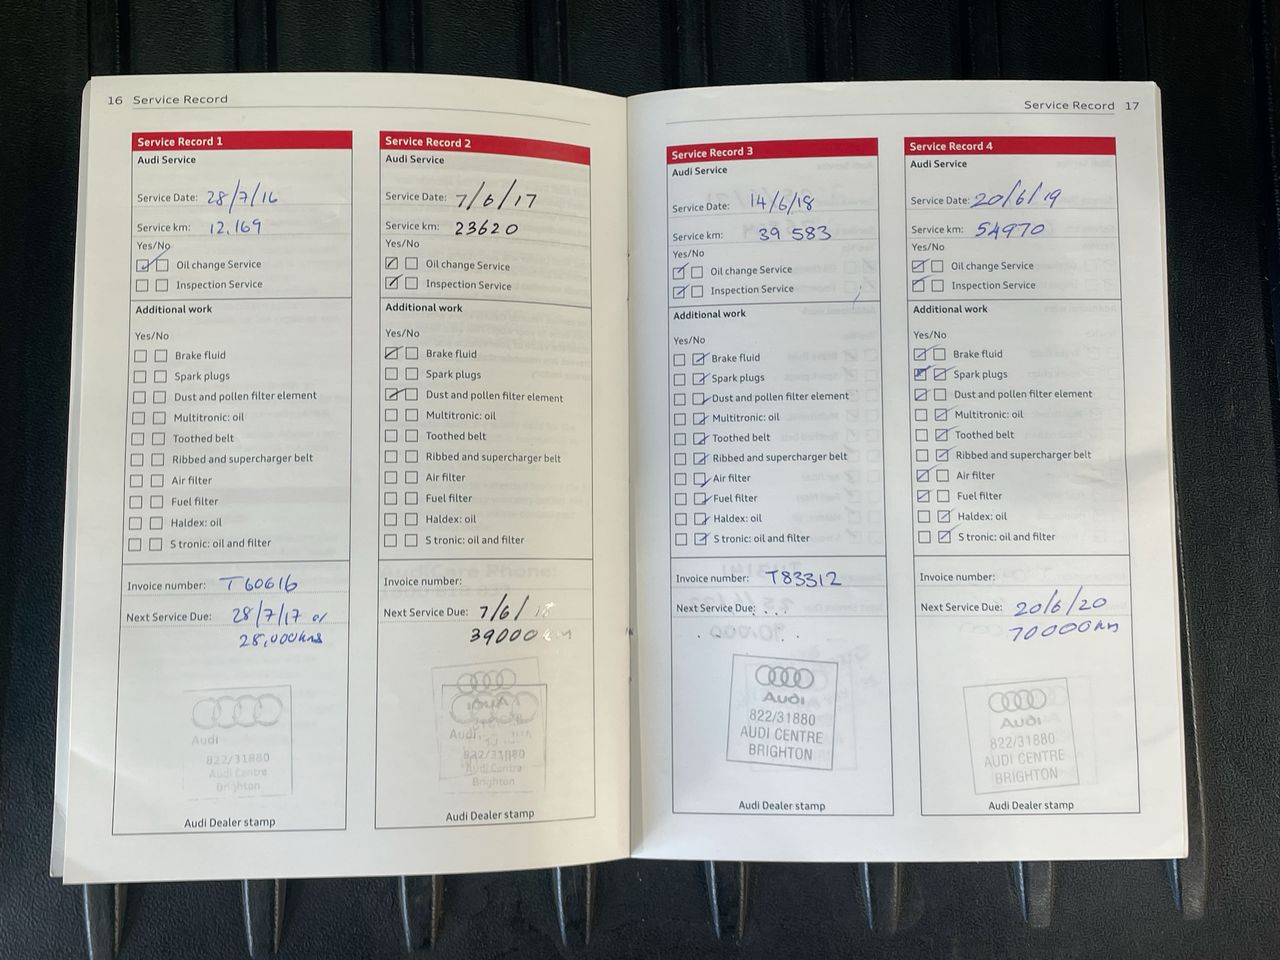 16 Service Record
Service Record 1
Audi Service
Service Date: 28/7/16
Service km: 12.169
Yes/No
Oil change Service
Inspection Service
Additional work
Yes/No
Brake fluid
Spark plugs
Dust and pollen filter element
Multitronic: oil
Toothed belt
Ribbed and supercharger belt
Air filter
Fuel filter
Haldex: oil
S tronic: oil and filter
Invoice number: T60616
Next Service Due: 28/7/17 or
28,000kms
Audi
822/31880
Audi Centre
Brighton
Audi Dealer stamp
Service Record 2
Audi Service
Service Date: 7/6/17
Service km: 23620
Yes/No
Oil change Service
Inspection Service
Additional work
Yes/No
Brake fluid
Spark plugs
Dust and pollen filter element
Multitronic: oil
Toothed belt
Ribbed and supercharger belt
Air filter
Fuel filter
Haldex: oil
S tronic: oil and filter
Invoice number:
Next Service Due: 7/6/18
39000km
Audi
822/31880
Audi Centre
Brighton
Audi Dealer stamp
Service Record 17
Service Record 3
Audi Service
Service Date: 14/6/18
Service km: 39 583
Yes/No
Oil change Service
Inspection Service
Additional work
Yes/No
Brake fluid
Spark plugs
Dust and pollen filter element
Multitronic: oil
Toothed belt
Ribbed and supercharger belt
Air filter
Fuel filter
Haldex: oil
S tronic: oil and filter
Invoice number: T83312
Next Service Due:
Audi
822/31880
AUDI CENTRE
BRIGHTON
Audi Dealer stamp
Service Record 4
Audi Service
Service Date: 20/6/19
Service km: 54970
Yes/No
Oil change Service
Inspection Service
Additional work
Yes/No
Brake fluid
Spark plugs
Dust and pollen filter element
Multitronic: oil
Toothed belt
Ribbed and supercharger belt
Air filter
Fuel filter
Haldex: oil
S tronic: oil and filter
Invoice number:
Next Service Due: 20/6/20
70000km
Audi
822/31880
AUDI CENTRE
BRIGHTON
Audi Dealer stamp